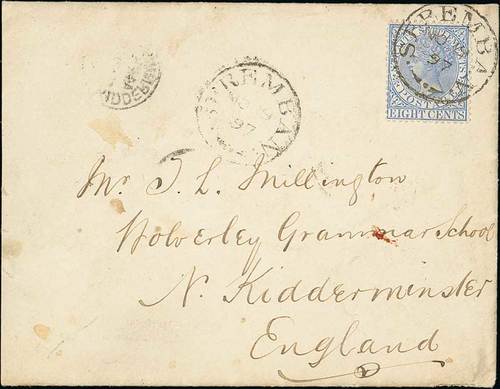 SEREMBAN
NO
97
SEREMBAN
NO
97
POSTAGE
EIGHT CENTS
Mr J. L. Millington
Wolverley Grammar School
N. Kidderminster
England